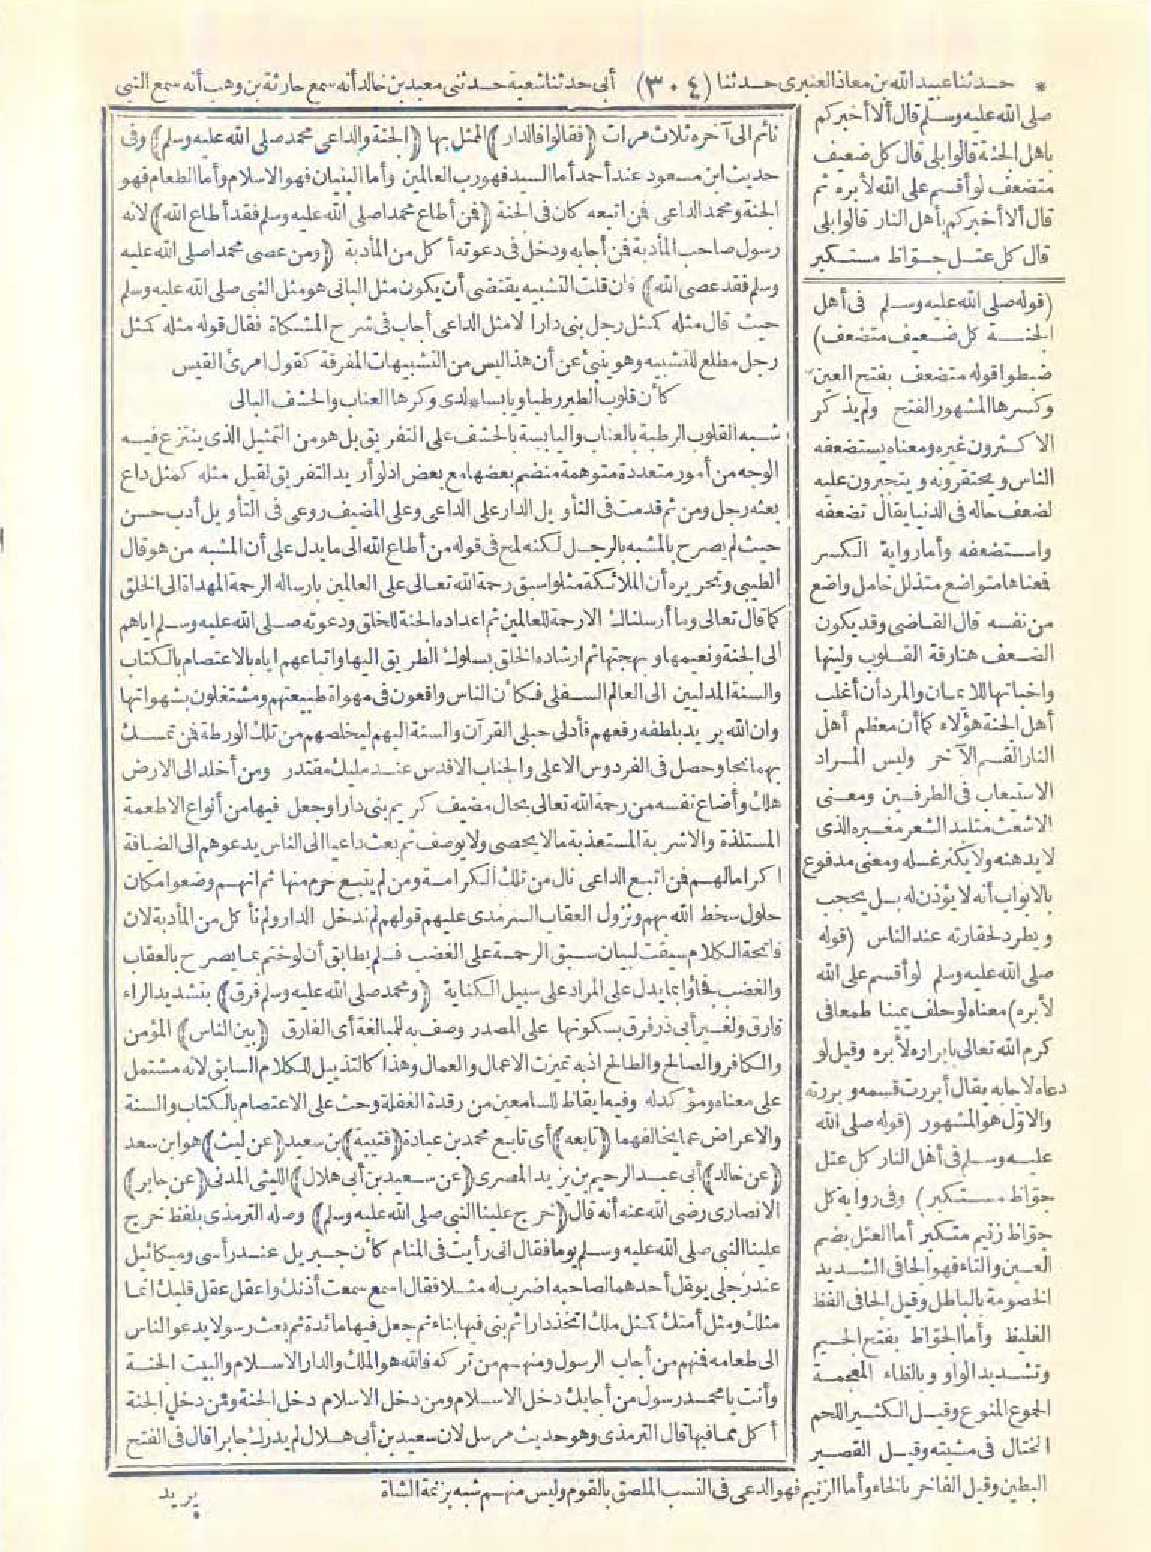 * حدثنا عبيد الله بن معاذ العنبرى حدثنا (٣٠٤) أبى حدثنا شعبة حدثنى معبد بن خالد أنه سمع حارثة بن وهب أنه سمع النبى
صلى الله عليه وسلم قال ألا أخبركم
باهل الجنة قالوا بلى قال كل ضعيف
متضعف لو أقسم على الله لأبره ثم
قال ألا أخبركم بأهل النار قالوا بلى
قال كل عتل جوّاظ مستكبر
(قوله صلى الله عليه وسلم فى أهل
الجنة كل ضعيف متضعف)
ضبطوا قوله متضعف بفتح العين
وكسرها المشهور الفتح ولم يذكر
الاكثرون غيره ومعناه يستضعفه
الناس ويحتقرونه ويتجبرون عليه
لضعف حاله فى الدنيا يقال تضعفه
واستضعفه وأما رواية الكسر
فمعناها متواضع متذلل خامل واضع
من نفسه قال القاضى وقد يكون
الضعف هنا رقة القلوب ولينها
واخباتها للايمان والمراد أن أغلب
أهل الجنة هؤلاء كما أن معظم أهل
النار القسم الآخر وليس المراد
الاستيعاب فى الطرفين ومعنى
الاشعث متلبد الشعر مغبره الذى
لا يدهنه ولا يكثر غسله ومعنى مدفوع
بالابواب أنه لا يؤذن له بل يحجب
ويطرد لحقارته عند الناس (قوله
صلى الله عليه وسلم لو أقسم على الله
لأبره) معناه لو حلف يمينا طمعا فى
كرم الله تعالى بابراره لأبره وقيل لو
دعاه لاجابه يقال أبررت قسمه وبررته
والاوّل هو المشهور (قوله صلى الله
عليه وسلم فى أهل النار كل عتل
جوّاظ مستكبر) وفى رواية كل
جوّاظ زنيم متكبر أما العتل بضم
العين والتاء فهو الجافى الشديد
الخصومة بالباطل وقيل الجافى الفظ
الغليظ وأما الجوّاظ بفتح الجيم
وتشديد الواو وبالظاء المعجمة
الجموع المنوع وقيل الكثير اللحم
المختال فى مشيته وقيل القصير
البطين وقيل الفاخر بالخاء وأما الزنيم فهو الدعى فى النسب الملصق بالقوم وليس منهم شبه بزنمة الشاة
نائم الى آخره ثلاث مرات (فقالوا فالدار) الممثل بها (الجنة والداعى محمد صلى الله عليه وسلم) وفى
حديث ابن مسعود عند أحمد أما السيد فهو رب العالمين وأما البنيان فهو الاسلام وأما الطعام فهو
الجنة ومحمد الداعى فمن اتبعه كان فى الجنة (فمن أطاع محمدا صلى الله عليه وسلم فقد أطاع الله) لانه
رسول صاحب المأدبة فمن أجابه ودخل فى دعوته أكل من المأدبة (ومن عصى محمدا صلى الله عليه
وسلم فقد عصى الله) فان قلت التشبيه يقتضى أن يكون مثل البانى هو مثل النبى صلى الله عليه وسلم
حيث قال مثله كمثل رجل بنى دارا لا مثل الداعى أجاب فى شرح المشكاة فقال قوله مثله كمثل
رجل مطلع للتشبيه وهو ينبئ عن أن هذا ليس من التشبيهات المفرقة كقول امرئ القيس
كأن قلوب الطير رطبا ويابسا * لدى وكرها العناب والحشف البالى
شبه القلوب الرطبة بالعناب واليابسة بالحشف على التفريق بل هو من التمثيل الذى ينتزع فيه
الوجه من أمور متعددة متوهمة منضم بعضها مع بعض اذ لو أريد التفريق لقيل مثله كمثل داع
بعثه رجل ومن ثم قدمت فى التأويل الدار على الداعى وعلى المضيف روعى فى التأويل أدب حسن
حيث لم يصرح بالمشبه بالرجل لكنه لمح فى قوله من أطاع الله الى ما يدل على أن المشبه من هو قال
الطيبى وتحريره أن الملائكة مثلوا سبق رحمة الله تعالى على العالمين بارساله الرحمة المهداة الى الخلق
كما قال تعالى وما أرسلناك الا رحمة للعالمين ثم اعداده الجنة للخلق ودعوته صلى الله عليه وسلم اياهم
الى الجنة ونعيمها وبهجتها ثم ارشاده الخلق بسلوك الطريق اليها واتباعهم اياه بالاعتصام بالكتاب
والسنة المدليين الى العالم السفلى فكأن الناس واقعون فى مهواة طبيعتهم ومشتغلون بشهواتها
وان الله يريد بلطفه رفعهم فأدلى حبلى القرآن والسنة اليهم ليخلصهم من تلك الورطة فمن تمسك
بهما نجا وحصل فى الفردوس الاعلى والجناب الاقدس عند مليك مقتدر ومن أخلد الى الارض
هلك وأضاع نفسه من رحمة الله تعالى بحال مضيف كريم بنى دارا وجعل فيها من أنواع الاطعمة
المستلذة والاشربة المستعذبة ما لا يحصى ولا يوصف ثم بعث داعيا الى الناس يدعوهم الى الضيافة
اكراما لهم فمن اتبع الداعى نال من تلك الكرامة ومن لم يتبع حرم منها ثم انهم وضعوا مكان
حلول سخط الله بهم ونزول العقاب السرمدى عليهم قولهم لم ندخل الدار ولم نأكل من المأدبة لان
فاتحة الكلام سيقت لبيان سبق الرحمة على الغضب فلم يطابق أن لو ختم بما يصرح بالعقاب
والغضب فجاؤا بما يدل على المراد على سبيل الكناية (ومحمد صلى الله عليه وسلم فرق) بتشديد الراء
فارق ولغير أبى ذر فرق بسكونها على المصدر وصف به للمبالغة أى الفارق (بين الناس) المؤمن
والكافر والصالح والطالح اذ به تميزت الاعمال والعمال وهذا كالتذييل للكلام السابق لانه مشتمل
على معناه ومؤكد له وفيه ايقاظ للسامعين من رقدة الغفلة وحث على الاعتصام بالكتاب والسنة
والاعراض عما يخالفهما (تابعه) أى تابع محمد بن عبادة (قتيبة) بن سعيد (عن ليث) هو ابن سعد
(عن خالد) أبى عبد الرحيم بن يزيد المصرى (عن سعيد بن أبى هلال) الليثى المدنى (عن جابر)
الانصارى رضى الله عنه أنه قال (خرج علينا النبى صلى الله عليه وسلم) وصله الترمذى بلفظ خرج
علينا النبى صلى الله عليه وسلم يوما فقال انى رأيت فى المنام كأن جبريل عند رأسى وميكائيل
عند رجلى يقول أحدهما لصاحبه اضرب له مثلا فقال اسمع سمعت أذنك واعقل عقل قلبك انما
مثلك ومثل أمتك كمثل ملك اتخذ دارا ثم بنى فيها بناء ثم جعل فيها مائدة ثم بعث رسولا يدعو الناس
الى طعامه فمنهم من أجاب الرسول ومنهم من تركه فالله هو الملك والدار الاسلام والبيت الجنة
وأنت يا محمد رسول من أجابك دخل الاسلام ومن دخل الاسلام دخل الجنة ومن دخل الجنة
أكل مما فيها قال الترمذى وهو حديث مرسل لان سعيد بن أبى هلال لم يدرك جابرا قال فى الفتح
يريد